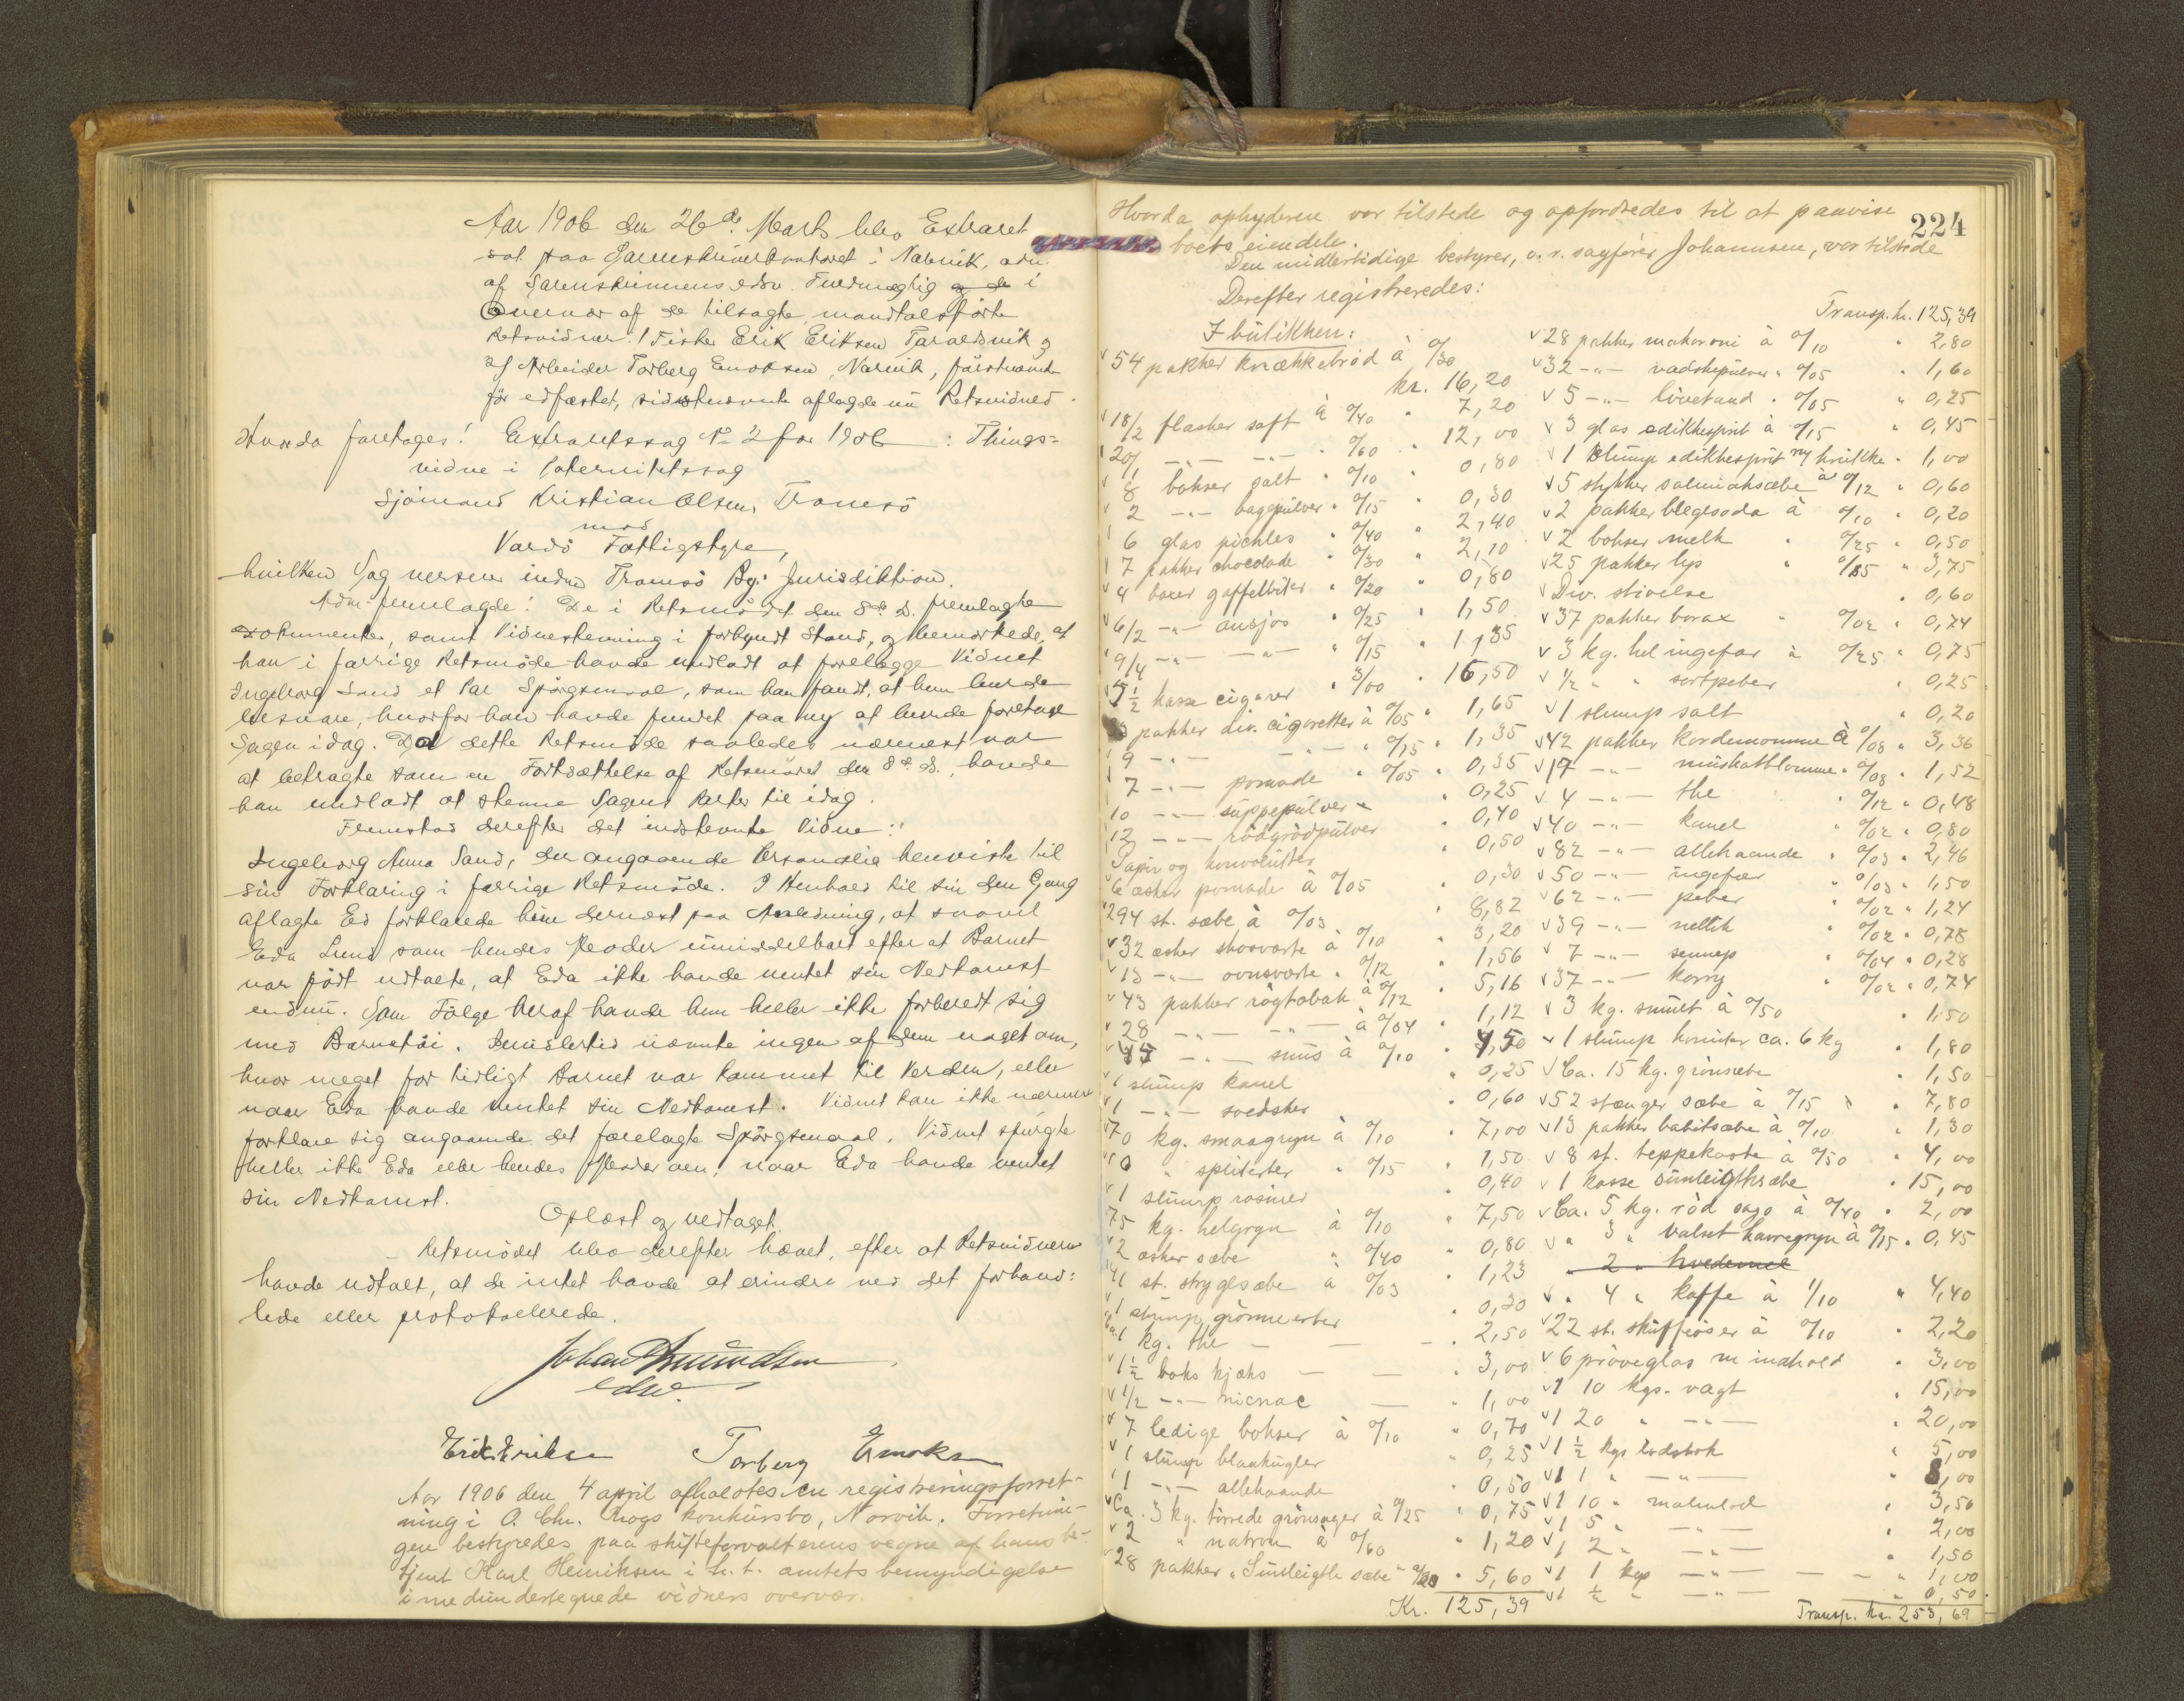 Aar 1906 den 26de Marts blev Extraret
sat paa Sorenskriverkontoret i Narvik, adm.
af Sorenskriverens edsv. Fuldmægtig i
Overvær af de tilsagte mandtalsførte
Retsvidner: 1 Fisker Erik Eriksen Taraldsvik og
2) Arbeider Torberg Enoksen, Narvik, førstnævnte
før edfæstet, sidstnævnte aflagde nu Retsvidned.
Hvorda foretoges: Extraretssag No 2 for 1906: Things=
vidne i Paternitetssag
Sjømand Kristian Olsen, Tromsø
mod
Vardø Fattigstyre,
hvilken Sag verserer inden Tromsø By: Jurisdiktion.
Adm. fremlagde: De i Retsmødet den 8de ds. fremlagte
Dokumenter, samt Vidnestevning i forkyndt Stand, og bemærkede, at
han i forrige Retsmøde havde undladt at forelægge Vidnet
Ingeborg Sand et Par Spørgsmaal, som han fandt, at hun burde
besvare, hvorfor han havde fundet paa ny at burde foretage
Sagen idag. Da dette Retsmøde saaledes nærmest var
at betragte som en Fortsættelse af Retsmødet den 8de ds., havde
han undladt at stevne Sagens Parter til idag.
Fremstod derefter det indstevnte Vidne:
Ingeborg Anna Sand, der angaaende Personalia henviste til
sin Forklaring i forrige Retsmøde. I Henhold til sin den Gang
aflagte Ed forklarede hun dernæst paa Anledning, at saavel
Eda Lund som hendes Moder umiddelbart efter at Barnet
var født udtalte, at Eda ikke havde ventet sin Nedkomst
endnu. Som Følge heraf havde hun heller ikke forberedt sig
med Barnetøi. Imidlertid nævnte ingen af dem noget om,
hvor meget for tidligt Barnet var kommet til Verden, eller
naar Eda havde ventet sin Nedkomst. Vidnet kan ikke nærmere
forklare sig angaaende det forelagte Spørgsmaal. Vidnet spurgte
heller ikke Eda eller hendes Moder om, naar Eda havde ventet
sin Nedkomst.
Oplæst og vedtaget.
Retsmødet blev derefter hævet, efter at Retsvidnerne
havde udtalt, at de intet havde at erindre ved det forhand=
lede eller protokollerede.
Johan Amundsen
edsv.
Erik Eriksen Torberg Enoksen
Aar 1906 den 4 april afholdtes en registreringsforret-
ning i O. Chr. konkursbo, Narvik. Forretnin-
gen bestyredes paa skifteforvalterens vegne af hans be-
tjent Karl Henriksen i h. t. amtets bemyndigelse
i medundertegnede vidners overvær.
224
Hvorda opbyderen var tilstede og opfordredes til at paavise
boets eiendele.
Den midlertidige bestyrer, o. r. sagfører Johannsen, var tilstede
Derefter registreredes:
I butikken:
54 pakker knækkebrød à 0/30 kr. 16,20
18/2 flasker saft à 0/40 " 7,20
20/1 -"- -"- " 0/60 " 12,00
8 bokser salt " 0/10 " 0,80
2 -"- bagepulver " 0/15 " 0,30
6 glas pickles " 0/40 " 2,40
7 pakker chocolade " 0/30 " 2,10
4 boxer gaffelbiter " 0/20 " 0,80
6/2 -"- ansjos " 0/25 " 1,50
9/4 -"- -"- " 0/15 " 1,35
5½ kasse cigarer " 3/00 " 16,50
pakker div. cigaretter à 0/05 " 1,65
9 -"- -"- " 0/15 " 1,35
7 -"- pomade " 0/05 " 0,35
10 -"- suppepulver " 0,25
12 -"- rødgrødpulver " 0,40
Papir og konvolutter " 0,50
6 æsker pomade à 0/05 " 0,30
294 st. sæbe à 0/03 " 8,82
32 æsker skosværte à 0/10 " 3,20
13 -"- ovnsværte " 0/12 " 1,56
43 pakker røgtobak à 0/12 " 5,16
28 -"- -"- à 0/04 " 1,12
45 -"- snus à 0/10 " 4,50
1 slump kanel " 0,25
1 -"- svedsker " 0,60
70 kg. smaagryn à 0/10 " 7,00
10 " spliterter " 0/15 " 1,50
1 slump rosiner " 0,40
75 kg. helgryn à 0/10 " 7,50
2 æsker sæbe " 0/40 " 0,80
41 st. strygesæbe à 0/03 " 1,23
1 slump grønne erter " 0,30
Ca. 1 kg. the " 2,50
1½ boks kjæks " 3,00
1/2 -"- nicnac " 1,00
7 ledige bokser à 0/10 " 0,70
1 slump blaakugler " 0,25
1 -"- allehaande " 0,50
Ca. 3 kg. tørrede grønsager à 0/25 " 0,75
2 " natron à 0/60 " 1,20
28 pakker "Sunleigth sæbe" 0/20 " 5,60
Kr. 125,39
Transp. kr. 125,39
28 pakker makaroni à 0/10 " 2,80
32 -"- vadskepulver " 0/05 " 1,60
5 -"- løvetand " 0/05 " 0,25
3 glas edikkesprit à 0/15 " 0,45
1 slump edikkesprit m/ krukke " 1,00
5 stykker salmiaksæbe à 0/12 " 0,60
2 pakker blegesoda à 0/10 " 0,20
2 bokser melk " 0/25 " 0,50
25 pakker lys " 0/15 " 3,75
Div. stivelse " 0,60
37 pakker borax " 0/02 " 0,74
3 kg. hel ingefær à 0/25 " 0,75
1/2 " " sortpeber " 0,25
1 slump salt " 0,20
42 pakker kardemomme à 0/08 " 3,36
19 -"- muskatblomme " 0/08 " 1,52
4 -"- the " 0/12 " 0,48
40 -"- kanel " 0/02 " 0,80
82 -"- allehaande " 0/03 " 2,46
50 -"- ingefær " 0/03 " 1,50
62 -"- peber " 0/02 " 1,24
39 -"- nellik " 0/02 " 0,78
7 -"- sennep " 0/04 " 0,28
37 -"- korry " 0/02 " 0,74
3 kg. smult à 0/50 " 1,50
1 slump korinter ca. 6 kg " 1,80
Ca. 15 kg. grønsæbe " 1,50
52 stænger sæbe à 0/15 " 7,80
13 pakker babitsæbe à 0/10 " 1,30
8 st. teppekoste à 0/50 " 4,00
1 kasse sunleigthsæbe " 15,00
Ca. 5 kg. rød sago à 0/40 " 2,00
" 3 " valset havregryn à 0/15 " 0,45
" 2 " hvedemel
" 4 " kaffe à 1/10 " 4,40
22 st. skuffeøser à 0/10 " 2,20
6 prøveglas m indhold " 3,00
1 10 kgs. vægt " 15,00
1 20 " -"- " 20,00
1 ½ kgs lodsbok " 5,00
1 1 " -"- " 8,00
1 10 " malmlod " 3,50
1 5 " -"- " 2,00
1 2 " -"- " 1,50
1 1 kgs -"- " 1,00
1 ½ " -"- " 0,50
Transp. kr. 253,69